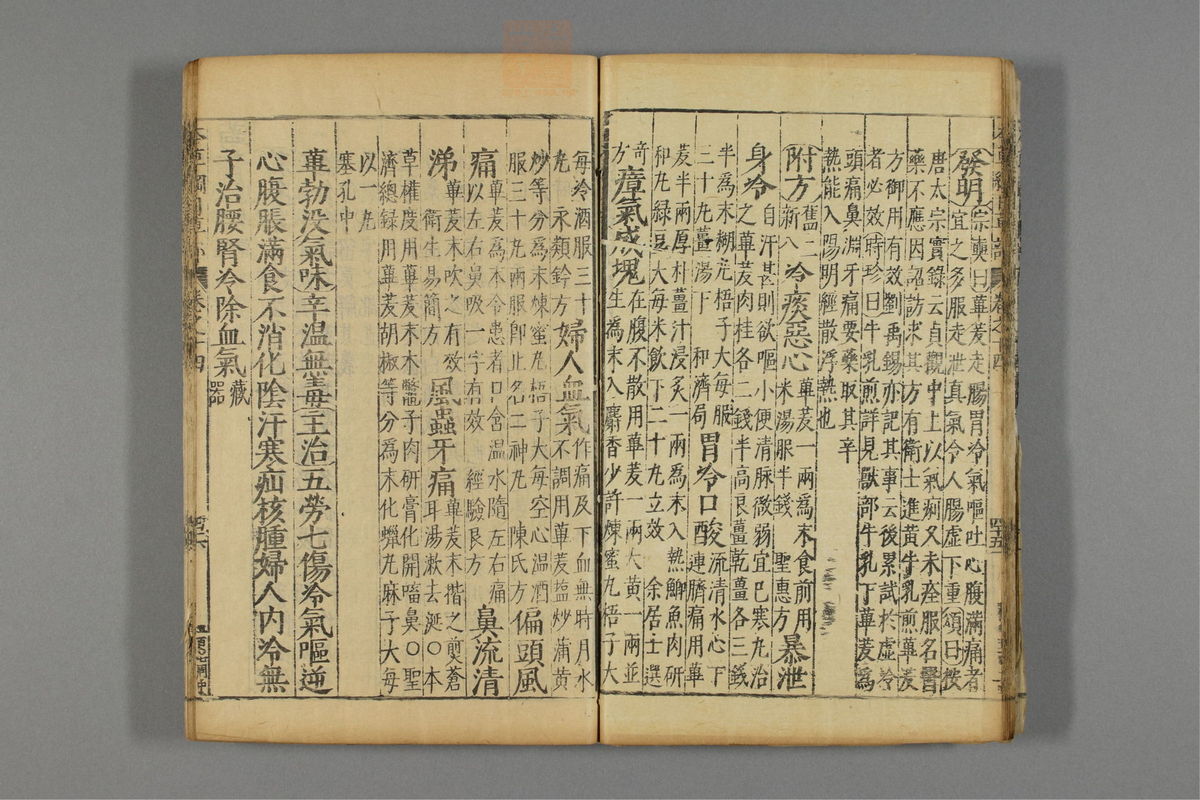 發明宗奭曰蓽茇走腸胃冷氣嘔吐心腹滿痛者
宜之多服走泄真氣令人腸虛下重頌曰按
唐太宗實錄云貞觀中上以氣痢久未痊服名醫
藥不應因詔訪求其方有衛士進黃牛乳煎蓽茇
方御用有效劉禹錫亦記其事云後累試於虛冷
者必效時珍曰牛乳煎詳見獸部牛乳下蓽茇爲
頭痛鼻淵牙痛要藥取其辛
熱能入陽明經散浮熱也
附方舊二新八冷痰惡心蓽茇一兩爲末食前用米湯服半錢聖惠方暴泄
身冷自汗甚則欲嘔小便清脉微弱宜已寒丸治
之蓽茇肉桂各二錢半高良薑乾薑各三錢
半爲末糊丸梧子大每服
三十丸薑湯下和濟局胃冷口酸流清水心下連臍痛用蓽
茇半兩厚朴薑汁浸炙一兩爲末入熱鯽魚肉研
和丸綠豆大每米飲下二十丸立效余居士選
奇方瘴氣成塊在腹不散用蓽茇一兩大黃一兩並
生爲末入麝香少許煉蜜丸梧子大
每冷酒服三十
丸永類鈐方婦人血氣作痛及下血無時月水不調用蓽茇鹽炒蒲黃
炒等分爲末煉蜜丸梧子大每空心溫酒
服三十丸兩服卽止名二神丸陳氏方偏頭風
痛蓽茇爲末令患者口含溫水隨左右痛
以左右鼻吸一字有效經驗良方鼻流清
涕蓽茇末吹之有效衛生易簡方風蟲牙痛蓽茇末揩之煎蒼耳湯漱去涎○本
草權度用蓽茇末木鱉子肉研膏化開㗜鼻○聖
濟總錄用蓽茇胡椒等分爲末化蠟丸麻子大每
以一丸
塞孔中
蓽勃没氣味辛溫無毒主治五勞七傷冷氣嘔逆
心腹脹滿食不消化陰汗寒疝核腫婦人内冷無
子治腰腎冷除血氣藏器